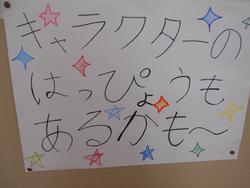 キャラクターの
はっぴょうも
あるかも〜